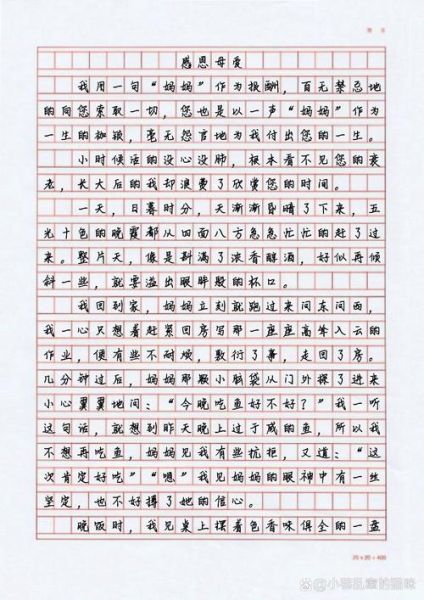 第 页
感恩母爱
我用一句“妈妈”作为报酬，百无禁忌地
的向您索取一切，您也是以一声“妈妈”作为
一生的枷锁，毫无怨言地为我付出您的一生。
小时候活的没心没肺，根本看不见您的衰
老，长大后的我却浪费了欣赏您的时间。
一天，日暮时分，天渐渐昏暗了下来，五
光十色的晚霞都从四面八方急急忙忙的赶了过
来。整片天，像是斟满了浓香醇酒，好似再倾
斜一些，就要溢出眼眸般的杯口。
我回到家，妈妈立刻就跑过来问东问西，
我一心只想着赶紧回房写那一座座高峰入云的
作业，便有些不耐烦，敷衍了事，走回了房。
几分钟过后，妈妈那颗小脑袋从门外探了进来
小心翼翼地问：“今晚吃鱼好不好？”我一听
这句话，就想到昨天晚上过于咸的鱼，所以我
不想再吃鱼，妈妈见我有些抗拒，又道：“这
次肯定好吃”“嗯”我见妈妈的眼神中有一丝
坚定，也不好撙了她的信心。
晚饭时，我见桌上摆着色香味俱全的一盘
20×20=400
小琴乱拿的猫咪